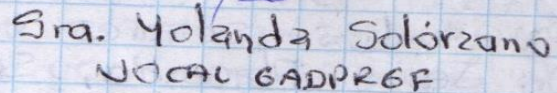 Sra. Yolanda Solórzano
VOCAL GADPRGF